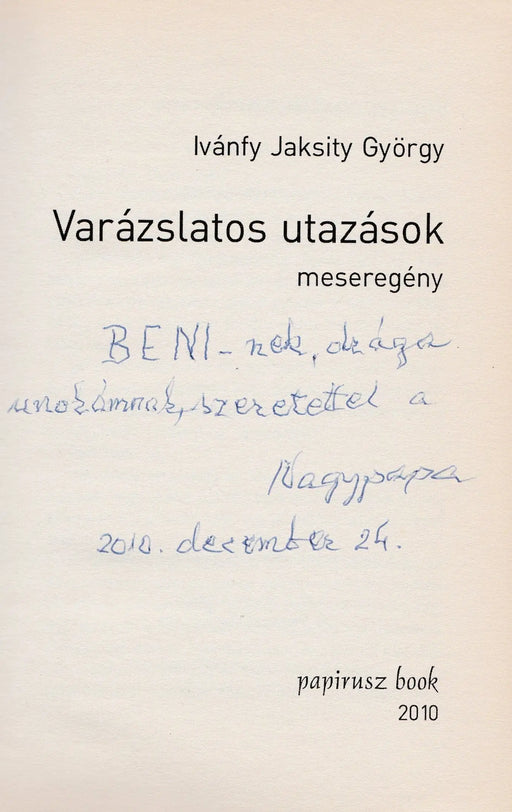 Ivánfy Jaksity György
Varázslatos utazások
meseregény
BENI-nek, drága
unokámnak, szeretettel a
Nagypapa
2010. december 24.
papirusz book
2010